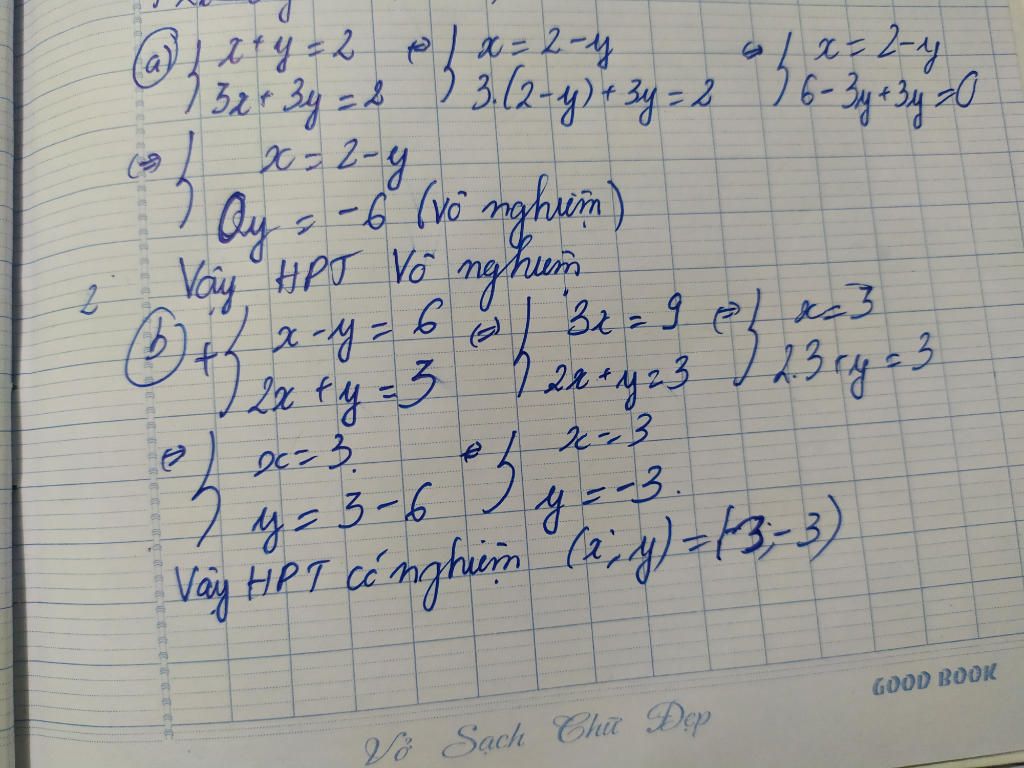 a) { x + y = 2 ⇔ { x = 2 - y ⇔ { x = 2 - y
3x + 3y = 2 3.(2-y) + 3y = 2 6 - 3y + 3y = 0
⇔ { x = 2 - y
0y = -6 (Vô nghiệm)
Vậy HPT Vô nghiệm
2
b) + { x - y = 6 ⇔ { 3x = 9 ⇔ { x = 3
2x + y = 3 2x + y = 3 2.3 + y = 3
⇔ { x = 3. ⇔ { x = 3
y = 3 - 6 y = -3.
Vậy HPT có nghiệm (x; y) = (3; -3)
GOOD BOOK
Vở Sạch Chữ Đẹp